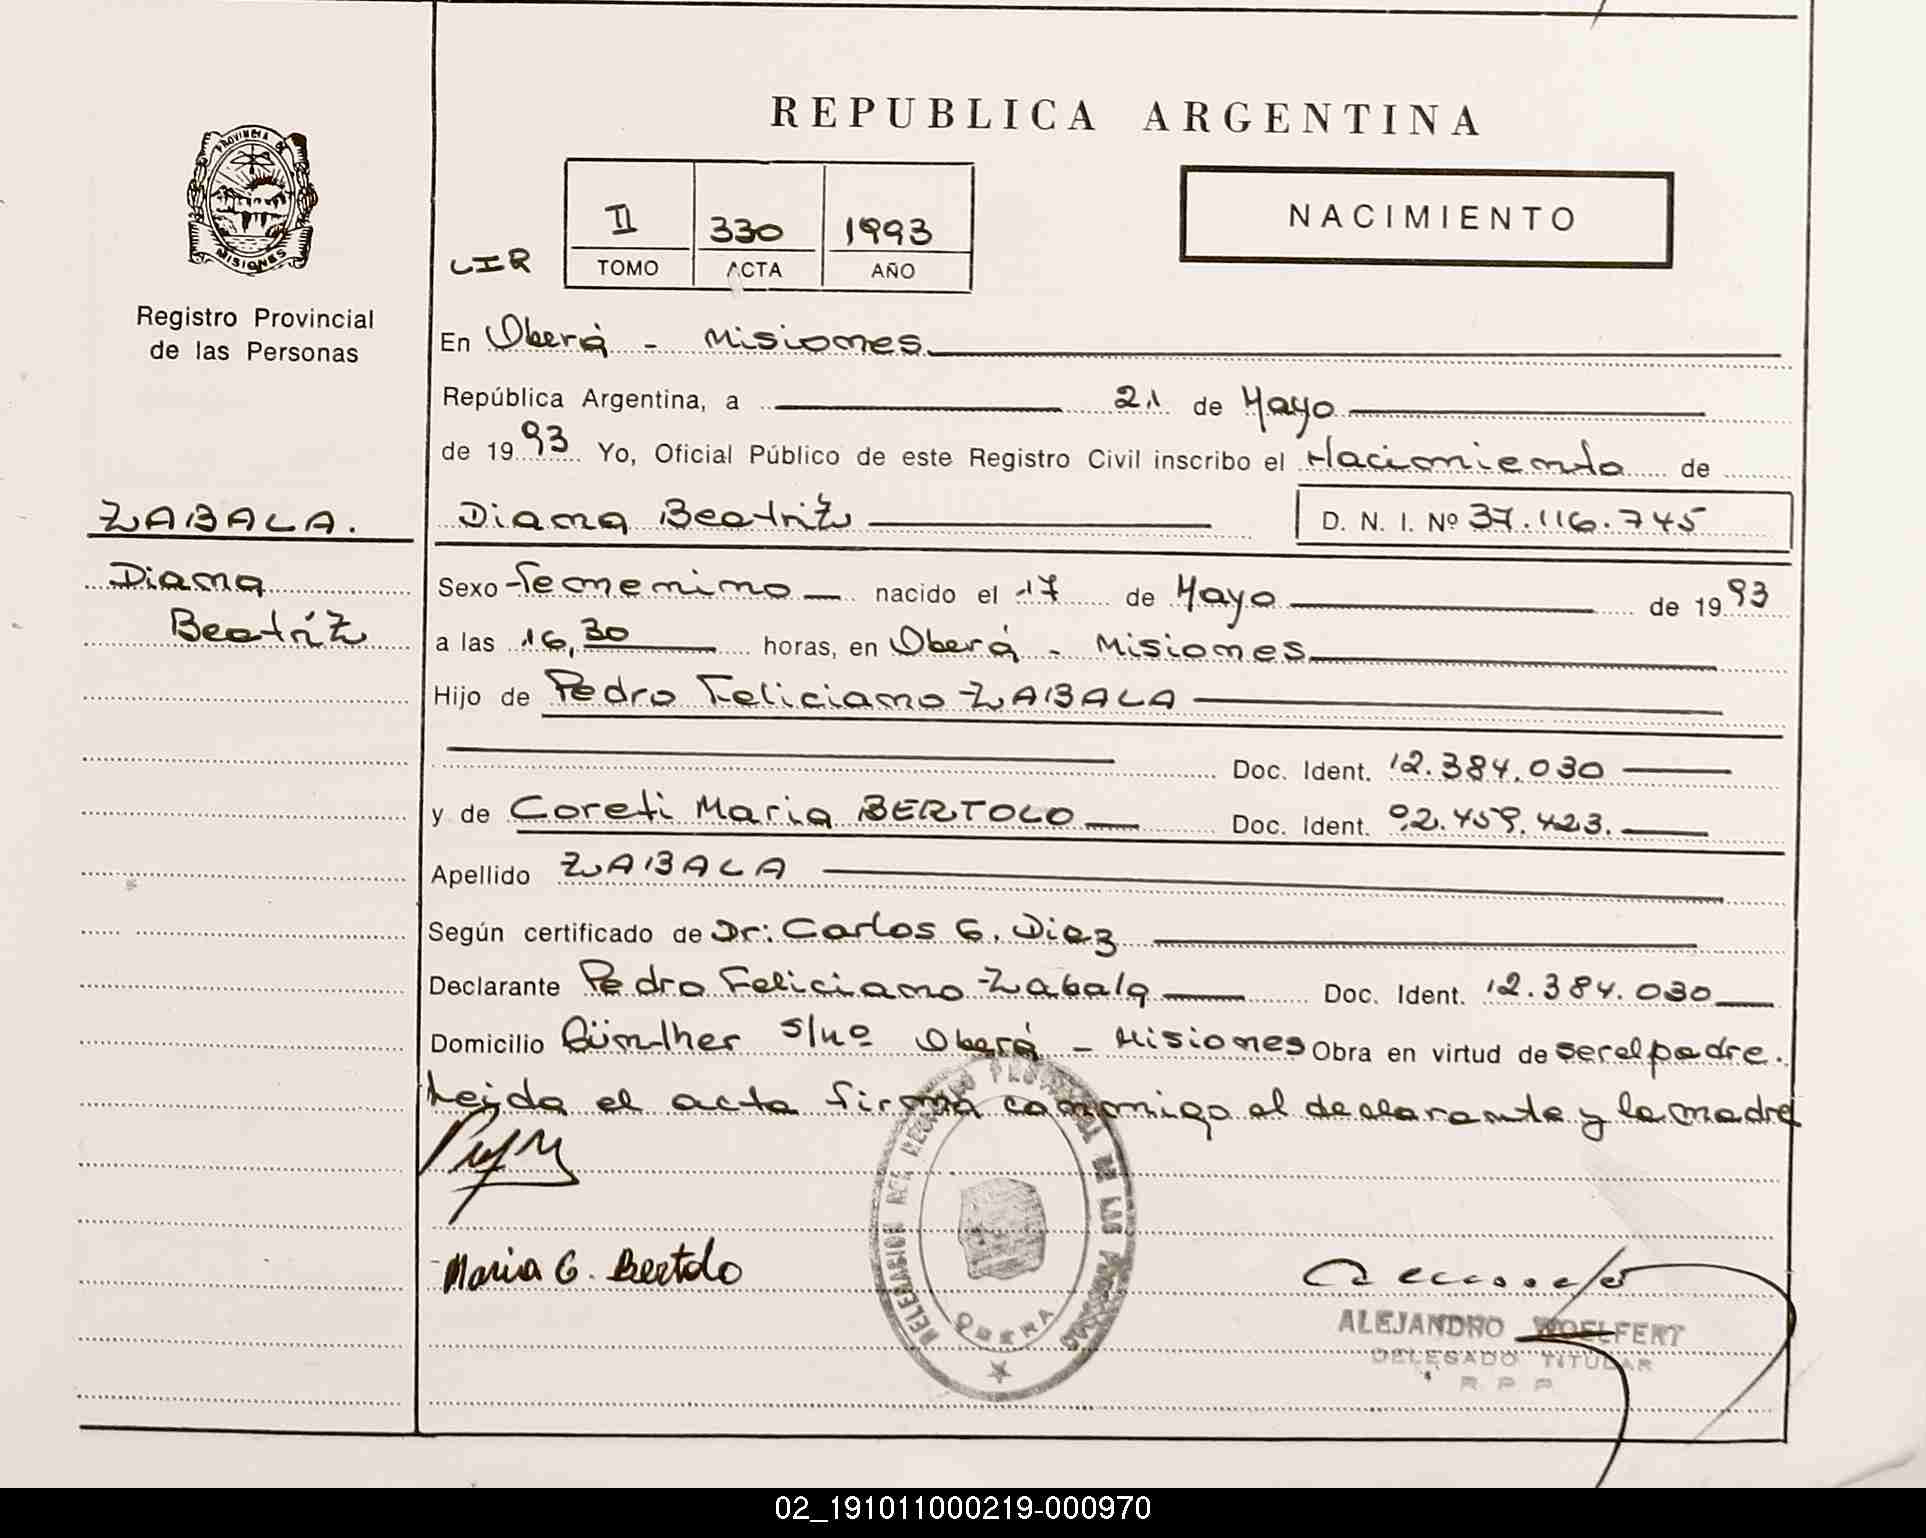 REPUBLICA ARGENTINA
PROVINCIA DE
MISIONES
Registro Provincial
de las Personas
NACIMIENTO
LIR
II 330 1993
TOMO ACTA AÑO
En Oberá - Misiones
República Argentina, a 21 de Mayo
de 1993 Yo, Oficial Público de este Registro Civil inscribo el Nacimiento de
ZABALA. Diana Beatriz D. N. I. Nº 37.116.745
Diana
Beatriz
Sexo Femenino nacido el 17 de Mayo de 1993
a las 16,30 horas, en Oberá - Misiones
Hijo de Pedro Feliciano ZABALA
Doc. Ident. 12.384.030
y de Coreti Maria BERTOLO Doc. Ident. 92.459.423.
Apellido ZABALA
Según certificado de Dr: Carlos G. Diaz
Declarante Pedro Feliciano Zabala Doc. Ident. 12.384.030
Domicilio Günther s/nº Oberá - Misiones Obra en virtud de ser el padre.
Leida el acta firman conmigo el declarante y la madre
DELEGACION DEL REGISTRO PROVINCIAL DE LAS PERSONAS
OBERA
Maria G. Bertolo
ALEJANDRO WOELFERT
DELEGADO TITULAR
R. P. P.
02_191011000219-000970